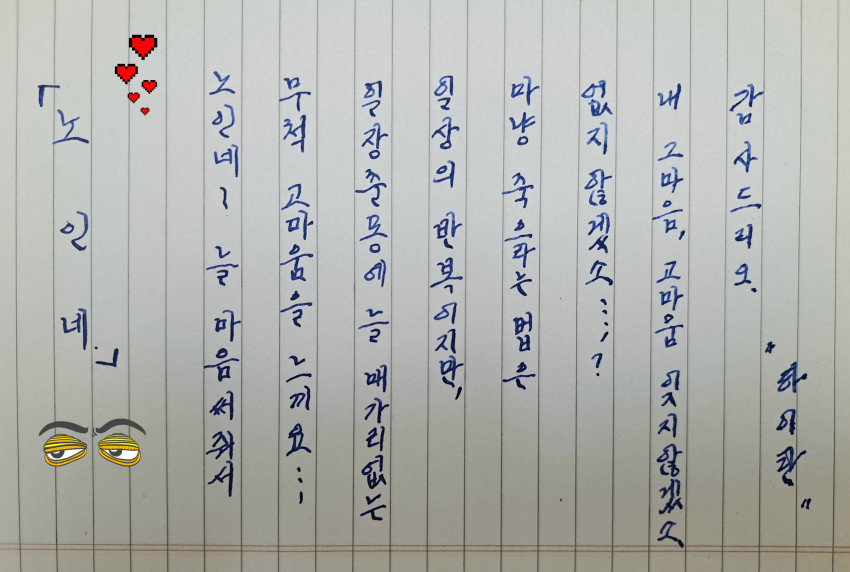 「노인네.」
노인네~ 늘 마음써줘서
무척 고마움을 느끼요...;
일장춘몽에 늘 매가리없는
일상의 반복이지만,
마냥 죽으라는 법은
없지 않겠소...;?
내 고마음, 고마움 잊지않겠소.
감사드리오.
"타이탄"